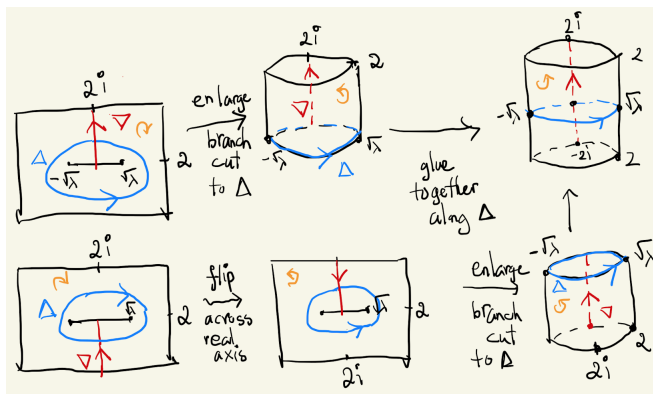 2i
∇
Δ
2
-√λ
√λ
enlarge
branch
cut
to Δ
2i
2
∇
-√λ
√λ
Δ
glue
together
along Δ
2i
2
-√λ
√λ
-2i
2
2i
Δ
√λ
2
∇
flip
across
real
axis
√λ
2
2i
enlarge
branch
cut
to Δ
-√λ
√λ
Δ
∇
2
2i